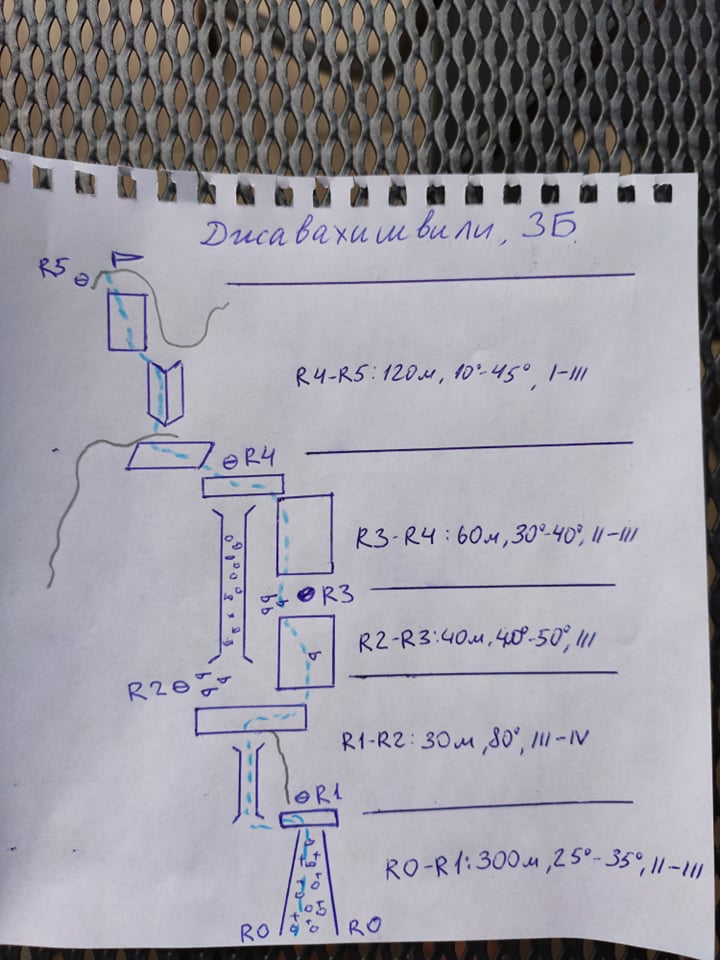 Джавахишвили, 3Б
R5
R4-R5: 120м, 10°-45°, I-III
R4
R3-R4: 60м, 30°-40°, II-III
R3
R2-R3: 40м, 40°-50°, III
R2
R1-R2: 30м, 80°, III-IV
R1
R0-R1: 300м, 25°-35°, II-III
R0 R0